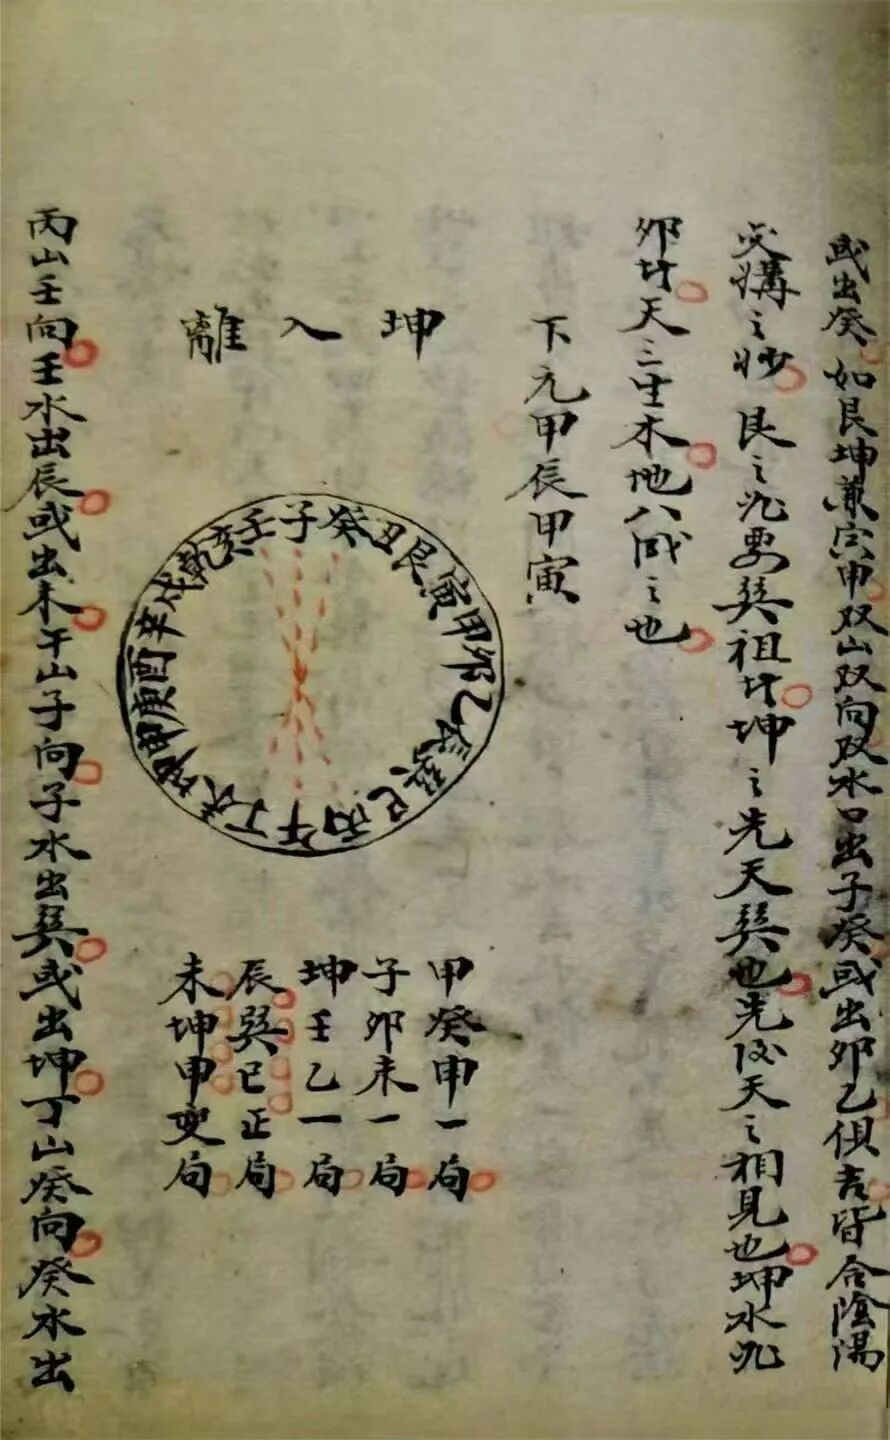 或出癸如艮坤兼寅申双山双向双水口出子癸或出卯乙俱吉皆合陰陽
交媾之妙艮之要巽祖坤之先天巽也先后天之相見也坤水
卯天三生木地八成之也
下元甲辰甲寅
坤入離
子癸丑艮寅甲卯乙辰巽巳丙午丁未坤申庚酉辛戌乾亥壬
甲癸申一局
子卯未一局
坤壬乙一局
辰巽巳正局
未坤申变局
丙山壬向壬水出辰或出未午山子向子水出巽或出坤丁山癸向癸水出